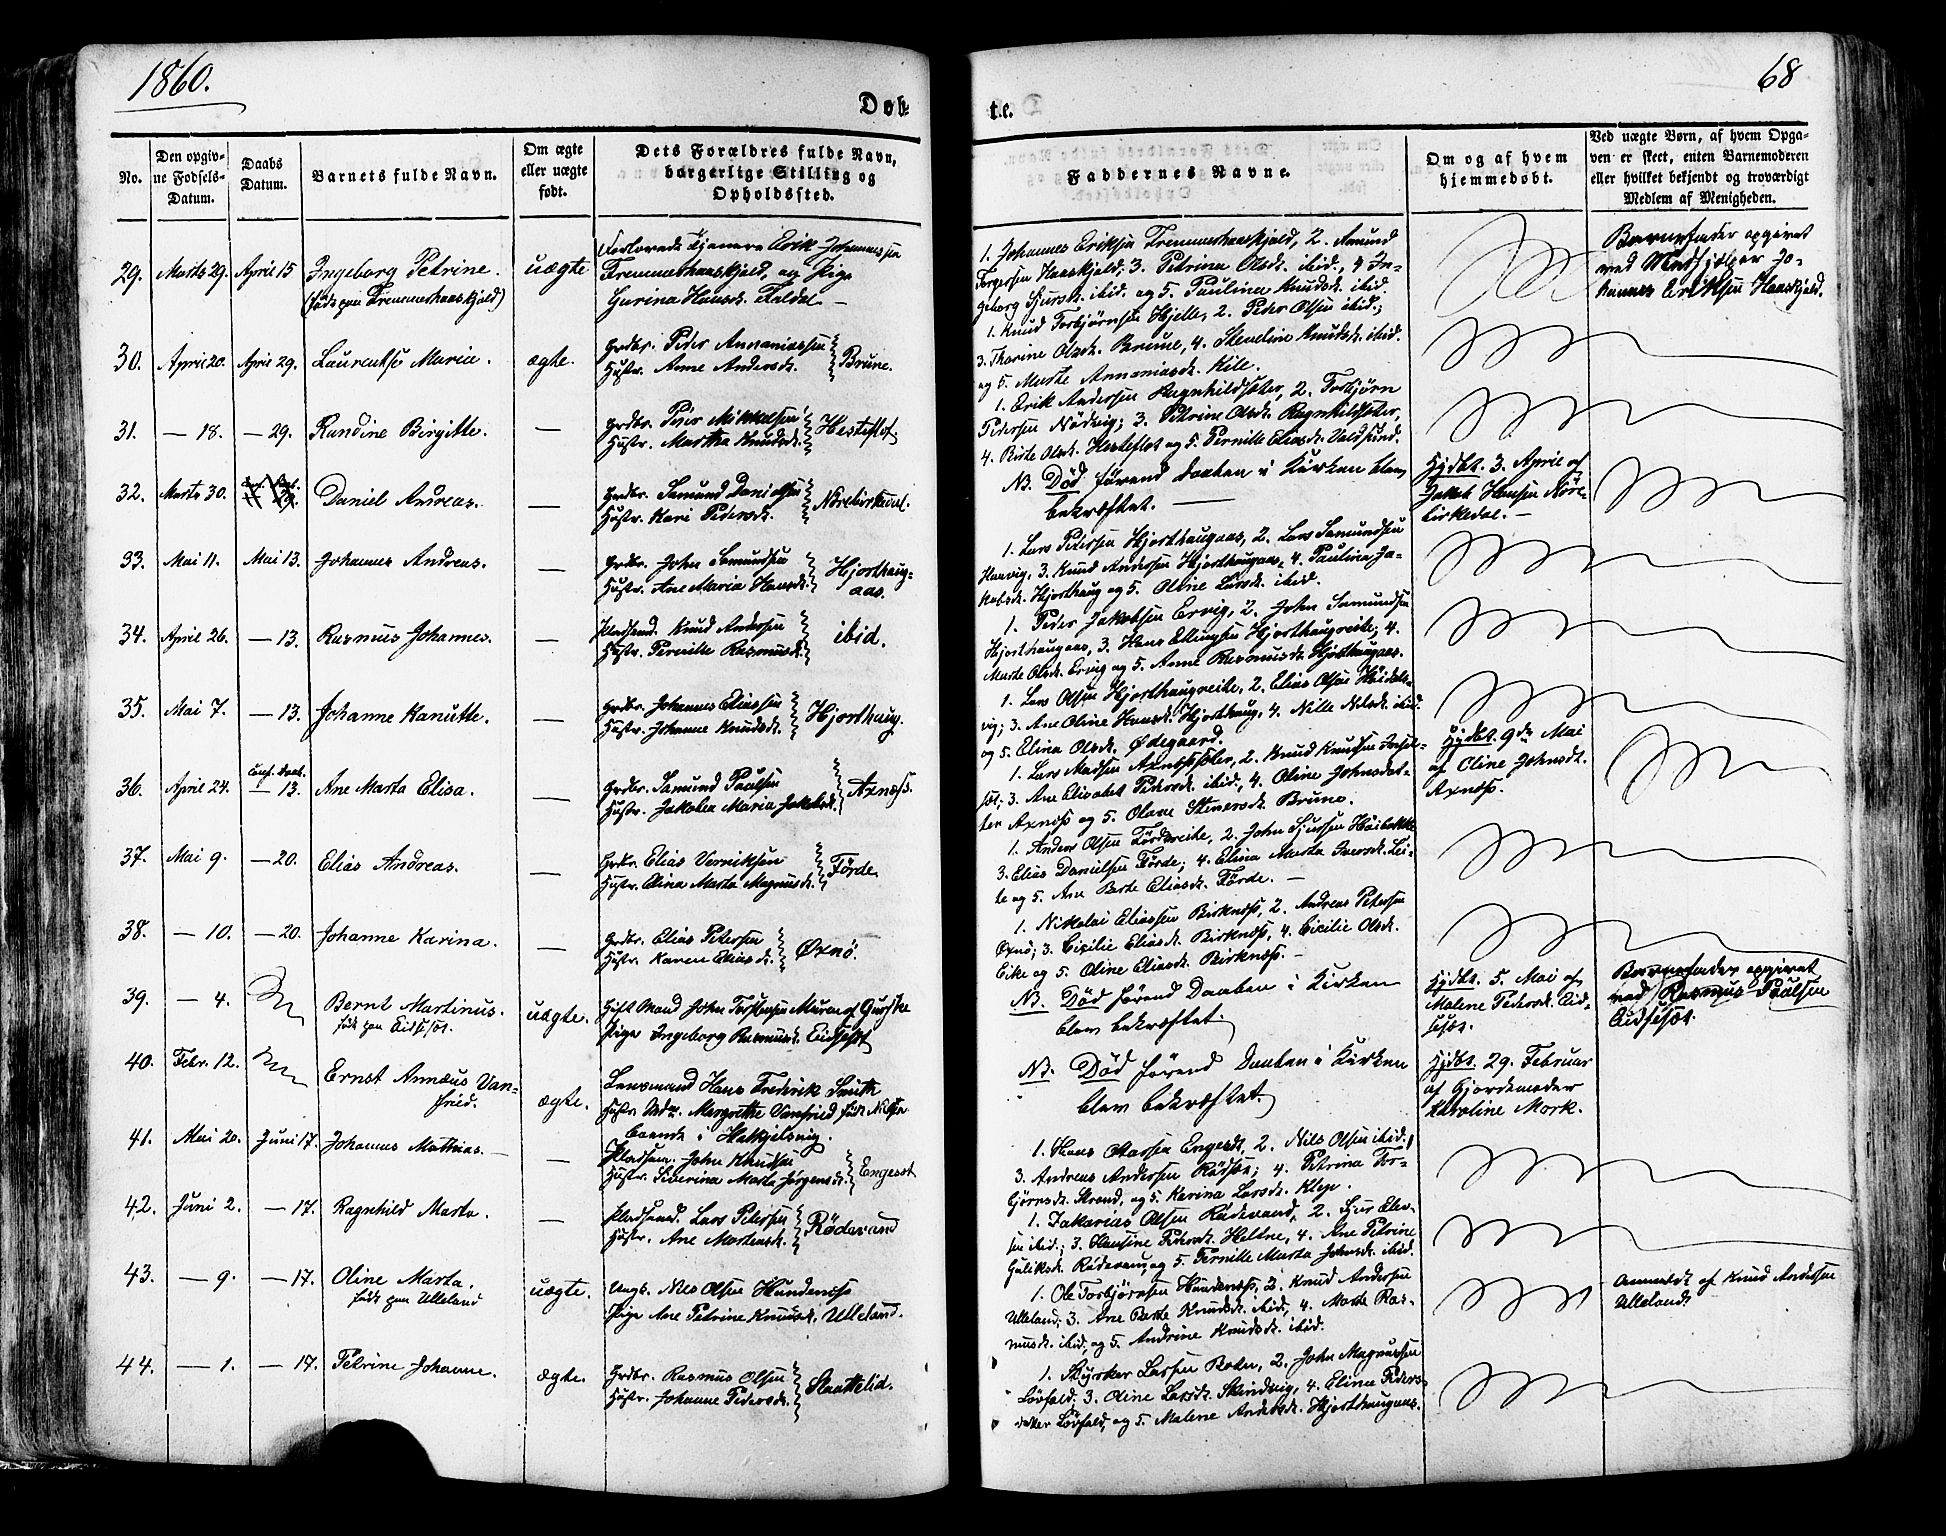 1860.
68
Døb-
te.
No.
Den opgiv-
ne Fødsels-
Datum.
Daabs
Datum.
Barnets fulde Navn.
Om ægte
eller uægte
født.
Dets Forældres fulde Navn,
borgerlige Stilling og
Opholdssted.
Faddernes Navne.
Om og af hvem
hjemmedøbt.
Ved uægte Børn, af hvem Opga-
ven er skeet, enten Barnemoderen
eller hvilket bekjendt og troværdigt
Medlem af Menigheden.
29. Marts 29. April 15 Ingeborg Petrine. uægte
(født paa Fremmerhaaskjold)
Erik Johannessen
Fremmerhaaskjold, og Pige
Gurina Hansd. Faldal —
1. Johannes Eriksen Fremmerhaaskjold, 2. Amund
Torgersen Haaskjold, 3. Petrina Olsd. ibid., 4 In-
geborg Sjursd. ibid. og 5. Paulina Knudsd. ibid.
Barnefader opgivet
ved Medhjælper Jo-
hannes Eriksen Haaskjold.
30. April 20. April 29. Laurentse Maria. ægte.
Grdbr. Peder Annaniassen
Hustr. Anne Andersd. Brune.
1. Knud Torbjørnsen Hjelle, 2. Peder Olsen ibid.;
3. Thorine Olsd. Brune, 4. Steneline Knudsd. ibid.
og 5. Marte Annaniasd. Kile.
31. — 18. — 29. Randine Birgitte. —
Grdbr. Peder Mikkelsen
Hustr. Martha Knudsd. Hesteflot
1. Erik Andersen Ragnhildsæter, 2. Torbjørn
Pedersen Nødvig; 3. Petrine Olsd. Ragnhildsæter,
4. Birte Olsd. Hesteflot og 5. Pernille Eliasd. Voldsund.
32. Marts 30. Daniel Andreas. —
Grdbr. Samund Danielsen
Hustr. Kari Pedersd. Nørebirkedal.
NB. Død førend Daaben i Kirken blev
bekræftet. —
Hjdbt. 3. April af
Jakob Hansen Nøre-
birkedal. —
33. Mai 11. Mai 13. Johannes Andreas. —
Grdbr. John Samundsen
Hustr. Ane Maria Hansd. Hjorthaug-
aas.
1. Lars Petersen Hjorthaugaas, 2. Lars Samundsen
Haavig, 3. Knud Andersen Hjorthaugaas, 4. Paulina Ja-
kobsd. Hjorthaug og 5. Oline Larsd. ibid.
34. April 26. — 13. Rasmus Johannes. —
Pladsmd. Knud Andersen
Hustr. Pernille Rasmusd. ibid.
1. Peder Jakobsen Ervig, 2. John Samundsen
Hjorthaugaas, 3. Hans Ellingsen Hjorthaugreite; 4.
Marte Olsd. Ervig og 5. Anne Rasmusd. Hjorthaugaas.
35. Mai 7. — 13. Johanne Kanutte. —
Grdbr. Johannes Eliassen
Hustr. Johanne Knudsd. Hjorthaug.
1. Lars Olsen Hjorthaugreite, 2. Elias Olsen Høidals-
vig; 3. Ane Oline Hansd. Hjorthaug, 4. Nille Nilsd. ibid.
og 5. Elina Olsd. Ødegaard.
36. April 24. Conf. Daab. — 13. Ane Marta Elisa. —
Grdbr. Samund Paulsen
Hustr. Jakobia Maria Jakobsd. Axnæss.
1. Lars Madsen Axnæssæter, 2. Knud Knudsen
sæt; 3. Ane Elisabet Pedersd. ibid., 4. Oline Johnsdat-
ter Axnæss og 5. Olave Steinersd. Brune.
Hjdbt. 9de Mai
af Oline Johnsd.
Axnæss.
37. Mai 9. — 20. Elias Andreas. —
Grdbr. Elias Verniksen
Hustr. Elina Marta Magnusd. Førde.
1. Anders Olsen Førdereite, 2. John Sjursen Høibakke
3. Elias Danielsen Førde; 4. Elina Marta Iversd. Lei-
te og 5. Ane Berte Eliasd. Førde. —
38. — 10. — 20. Johanne Karina. —
Grdbr. Elias Petersen
Hustr. Karen Eliasd. Øxnø.
1. Nikolai Eliassen Birknæss, 2. Andreas Petersen
Øxnø; 3. Cicilie Eliasd. Birknæss, 4. Cicilie Olsd.
Eike og 5. Oline Eliasd. Birknæss. —
39. — 4. Bernt Martinus. uægte.
født paa Eidsesæt.
Gift Mand John Torstensen Muren af Gurske
Pige Ingeborg Rasmusd. Eidsesæt
NB. Død førend Daaben i Kirken
blev bekræftet.
Hjdbt. 5. Mai af
Malene Pedersd. Eid-
sesæt.
Barnefader opgivet
ved Rasmus Paulsen
Eidsesæt.
40. Febr. 12. Ernst Annæus Van-
fried. ægte.
Lensmand Hans Frederik Smith
Hustr. Mdm. Margrethe Vanfried født Nilsen
boende i Hakjelsvig.
NB. Død førend Daaben i Kirken
blev bekræftet.
Hjdbt. 29. Februar
af Gjordemoder
Karoline Mork.
41. Mai 20. Juni 17. Johannes Mathias. — —
Pladsm. John Knudsen
Hustr. Severina Marta Jørgensd. Engeset
1. Hans Olassen Engeset, 2. Nils Olsen ibid.
3. Andreas Andersen Rødsæt; 4. Petrina Tor-
bjørnsd. Strand, og 5. Karina Larsd. Klep.
42. Juni 2. — 17. Ragnhild Marta. —
Pladsmd. Lars Petersen
Hustr. Ane Mortensd. Rødevand
1. Zakarias Olsen Rødevand, 2. Sjur Elev-
sen ibid.; 3. Olausine Pedersd. Heltne, 4. Ane Petrine
Guliksd. Rødevand, og 5. Pernille Marta Johnsd. ibid.
43. — 9. — 17. Oline Marta. uægte.
født paa Ulleland
Ungk. Nils Olsen Hundenæss
Pige Ane Petrine Knudsd. Ulleland.
1. Ole Torbjørnsen Hundenæss, 2. Knud Andersen
Ulleland; 3. Ane Berte Knudsd. ibid, 4. Marte Ras-
musd. ibid, og 5. Andrine Knudsd. ibid.
Anmeldt af Knud Andersen
Ulleland.
44. — 1. — 17. Petrine Johanne. ægte.
Grdbr. Rasmus Olsen
Hustr. Johanne Pedersd. Slaattelid.
1. Styrker Larsen Roden, 2. John Magnussen
Løvfald; 3. Oline Larsd. Skindvig, 4. Elina Peders-
datter Løvfald, og 5. Malene Andersd. Hjorthaugaas.